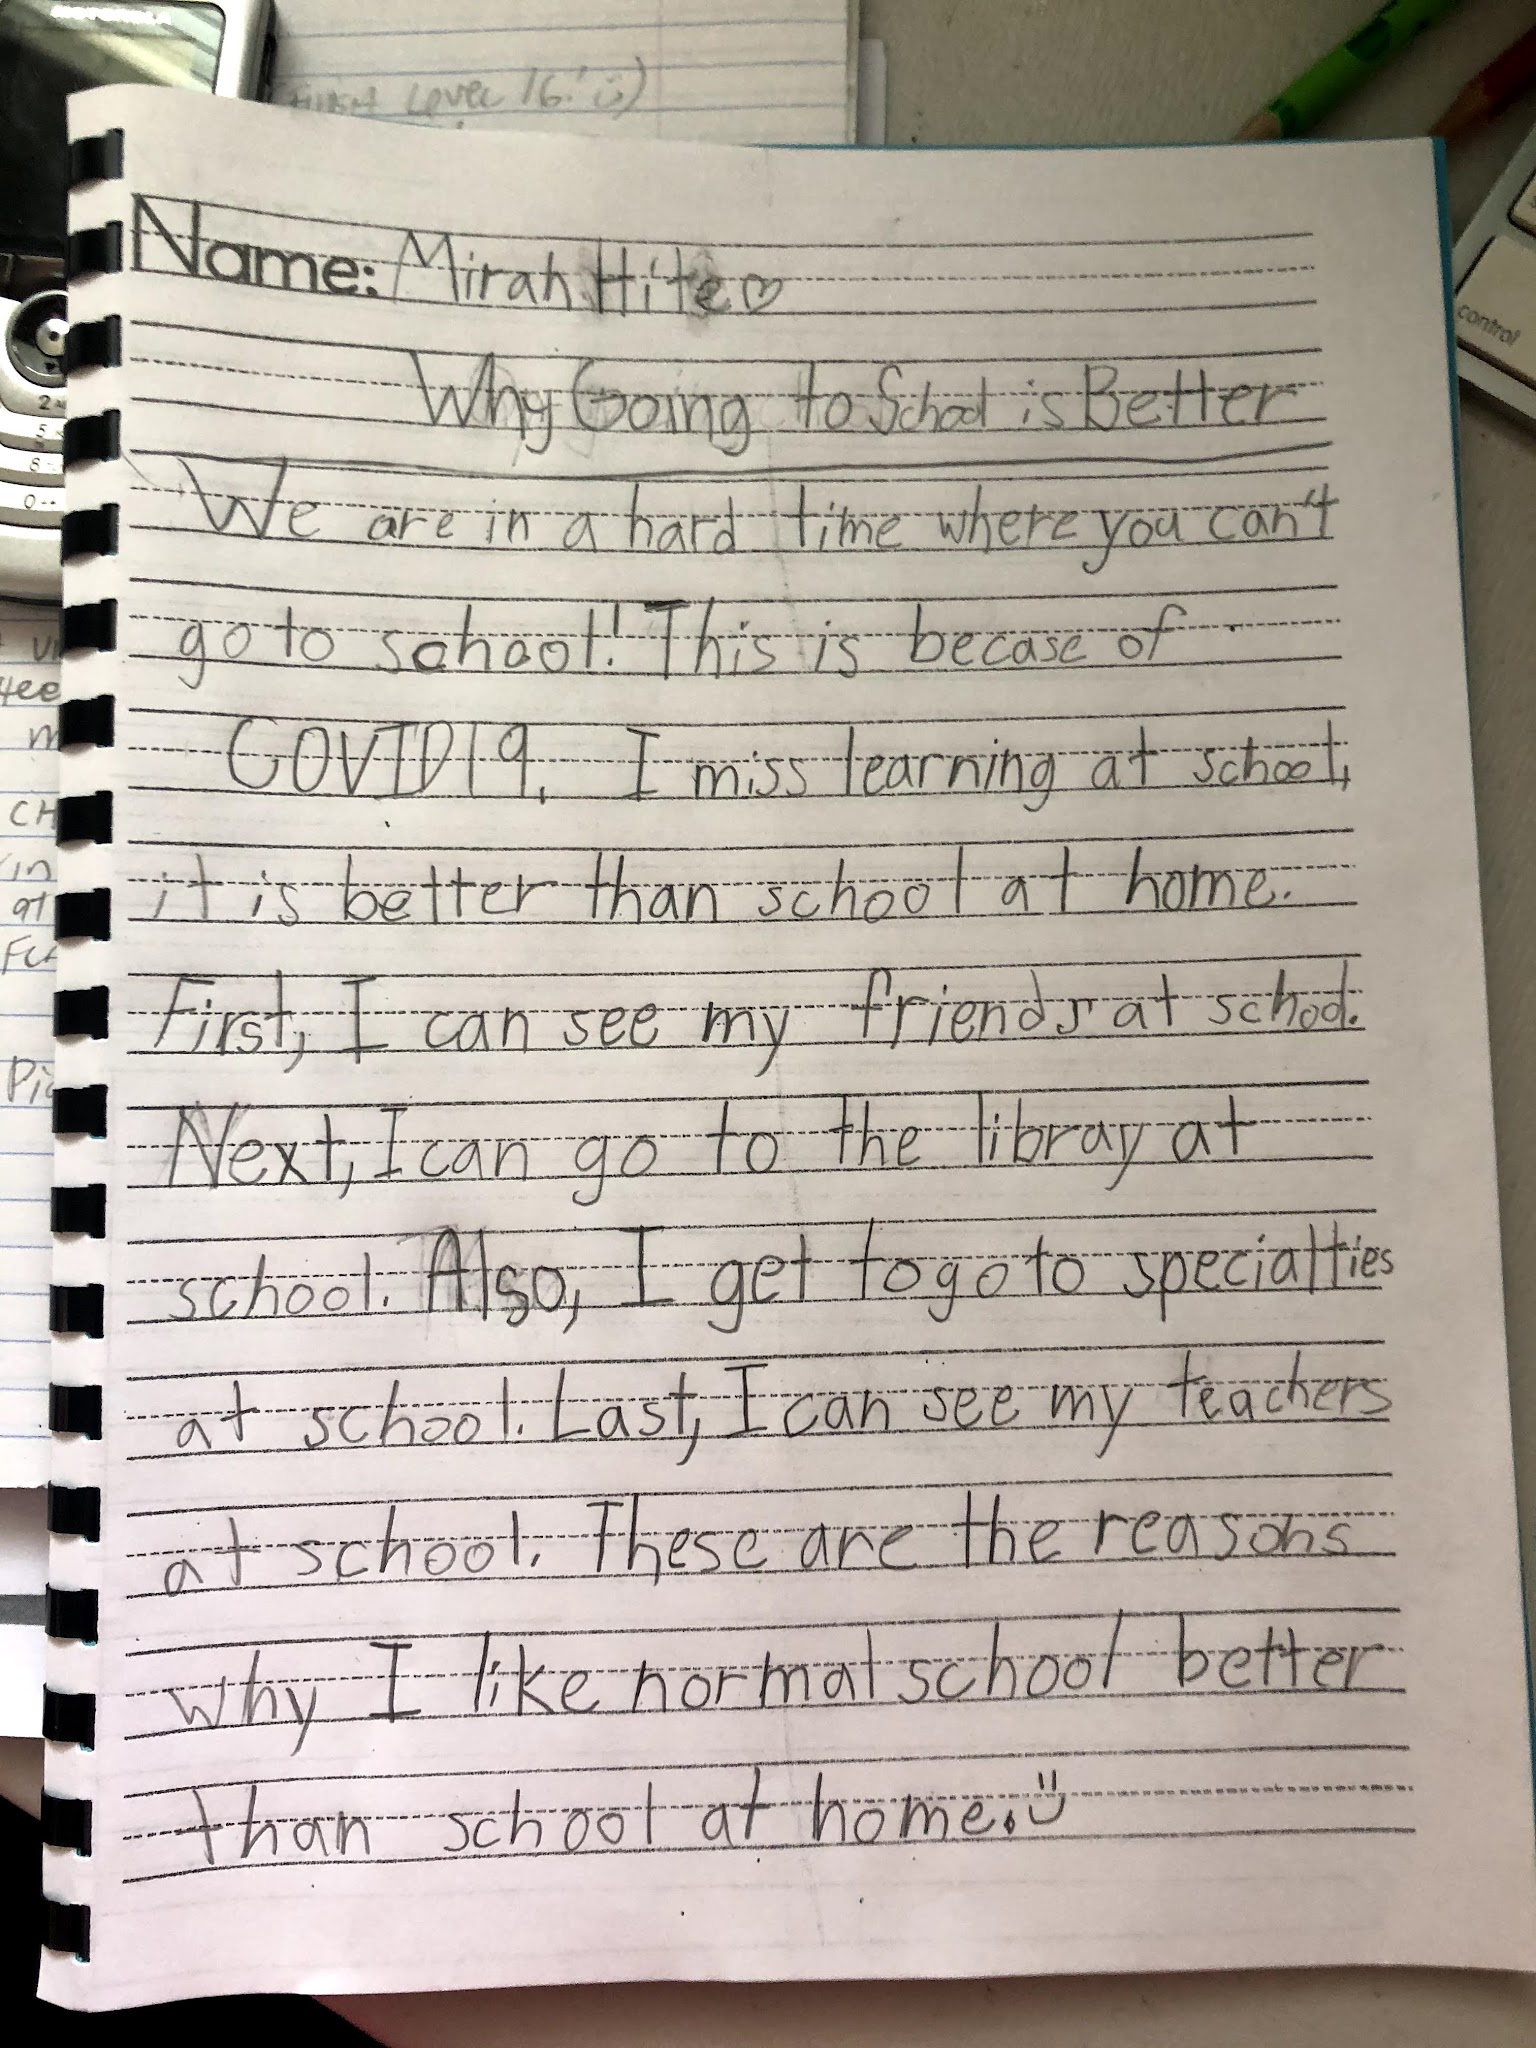 MOTOROLA
Level 16! :)
Name: Mirah Hite♡
Why Going to School is Better
We are in a hard time where you can't
go to school! This is becase of
COVID19, I miss learning at school,
it is better than school at home.
First, I can see my friends at school.
Next, I can go to the libray at
school. Also, I get to go to specialties
at school. Last, I can see my teachers
at school. These are the reasons
why I like normal school better
than school at home. :)
control
2
5
8
0